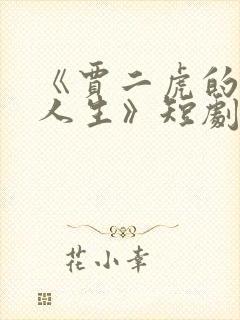 《賈二虎的
人生》短劇
花小幸